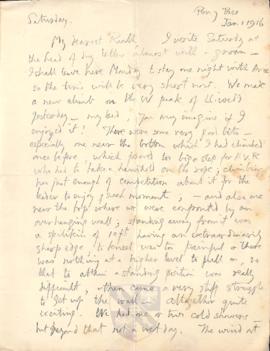 Pen y Pass
Jan. 1 1916
Saturday.
My dearest Ruth I write Saturday at
the head of my letter almost with a groan –
I shall leave here Monday to stay one night with
so the time will be very short now. We made
a new climb on the W peak of Lliwedd
yesterday – my lead; you may imagine if I
enjoyed it! There were some very good bits –
especially one near the bottom which I had climbed
once before, which proved too big a step for H.V.R.
who had to take a handhold on the rope;
just enough of competition about it for the
leader to enjoy each moment, – and also one
near the top where we were confronted by an
overhanging wall; standing away from it was
a splinter of rock having an extraordinarily
sharp edge; to kneel was too painful & there
was nothing at a higher level to pull on, so
that to attain a standing position was really
difficult, & then came a very stiff struggle
to get up the wall – altogether quite
exciting. We had one or two cold showers
but beyond that not a wet day. The wind at